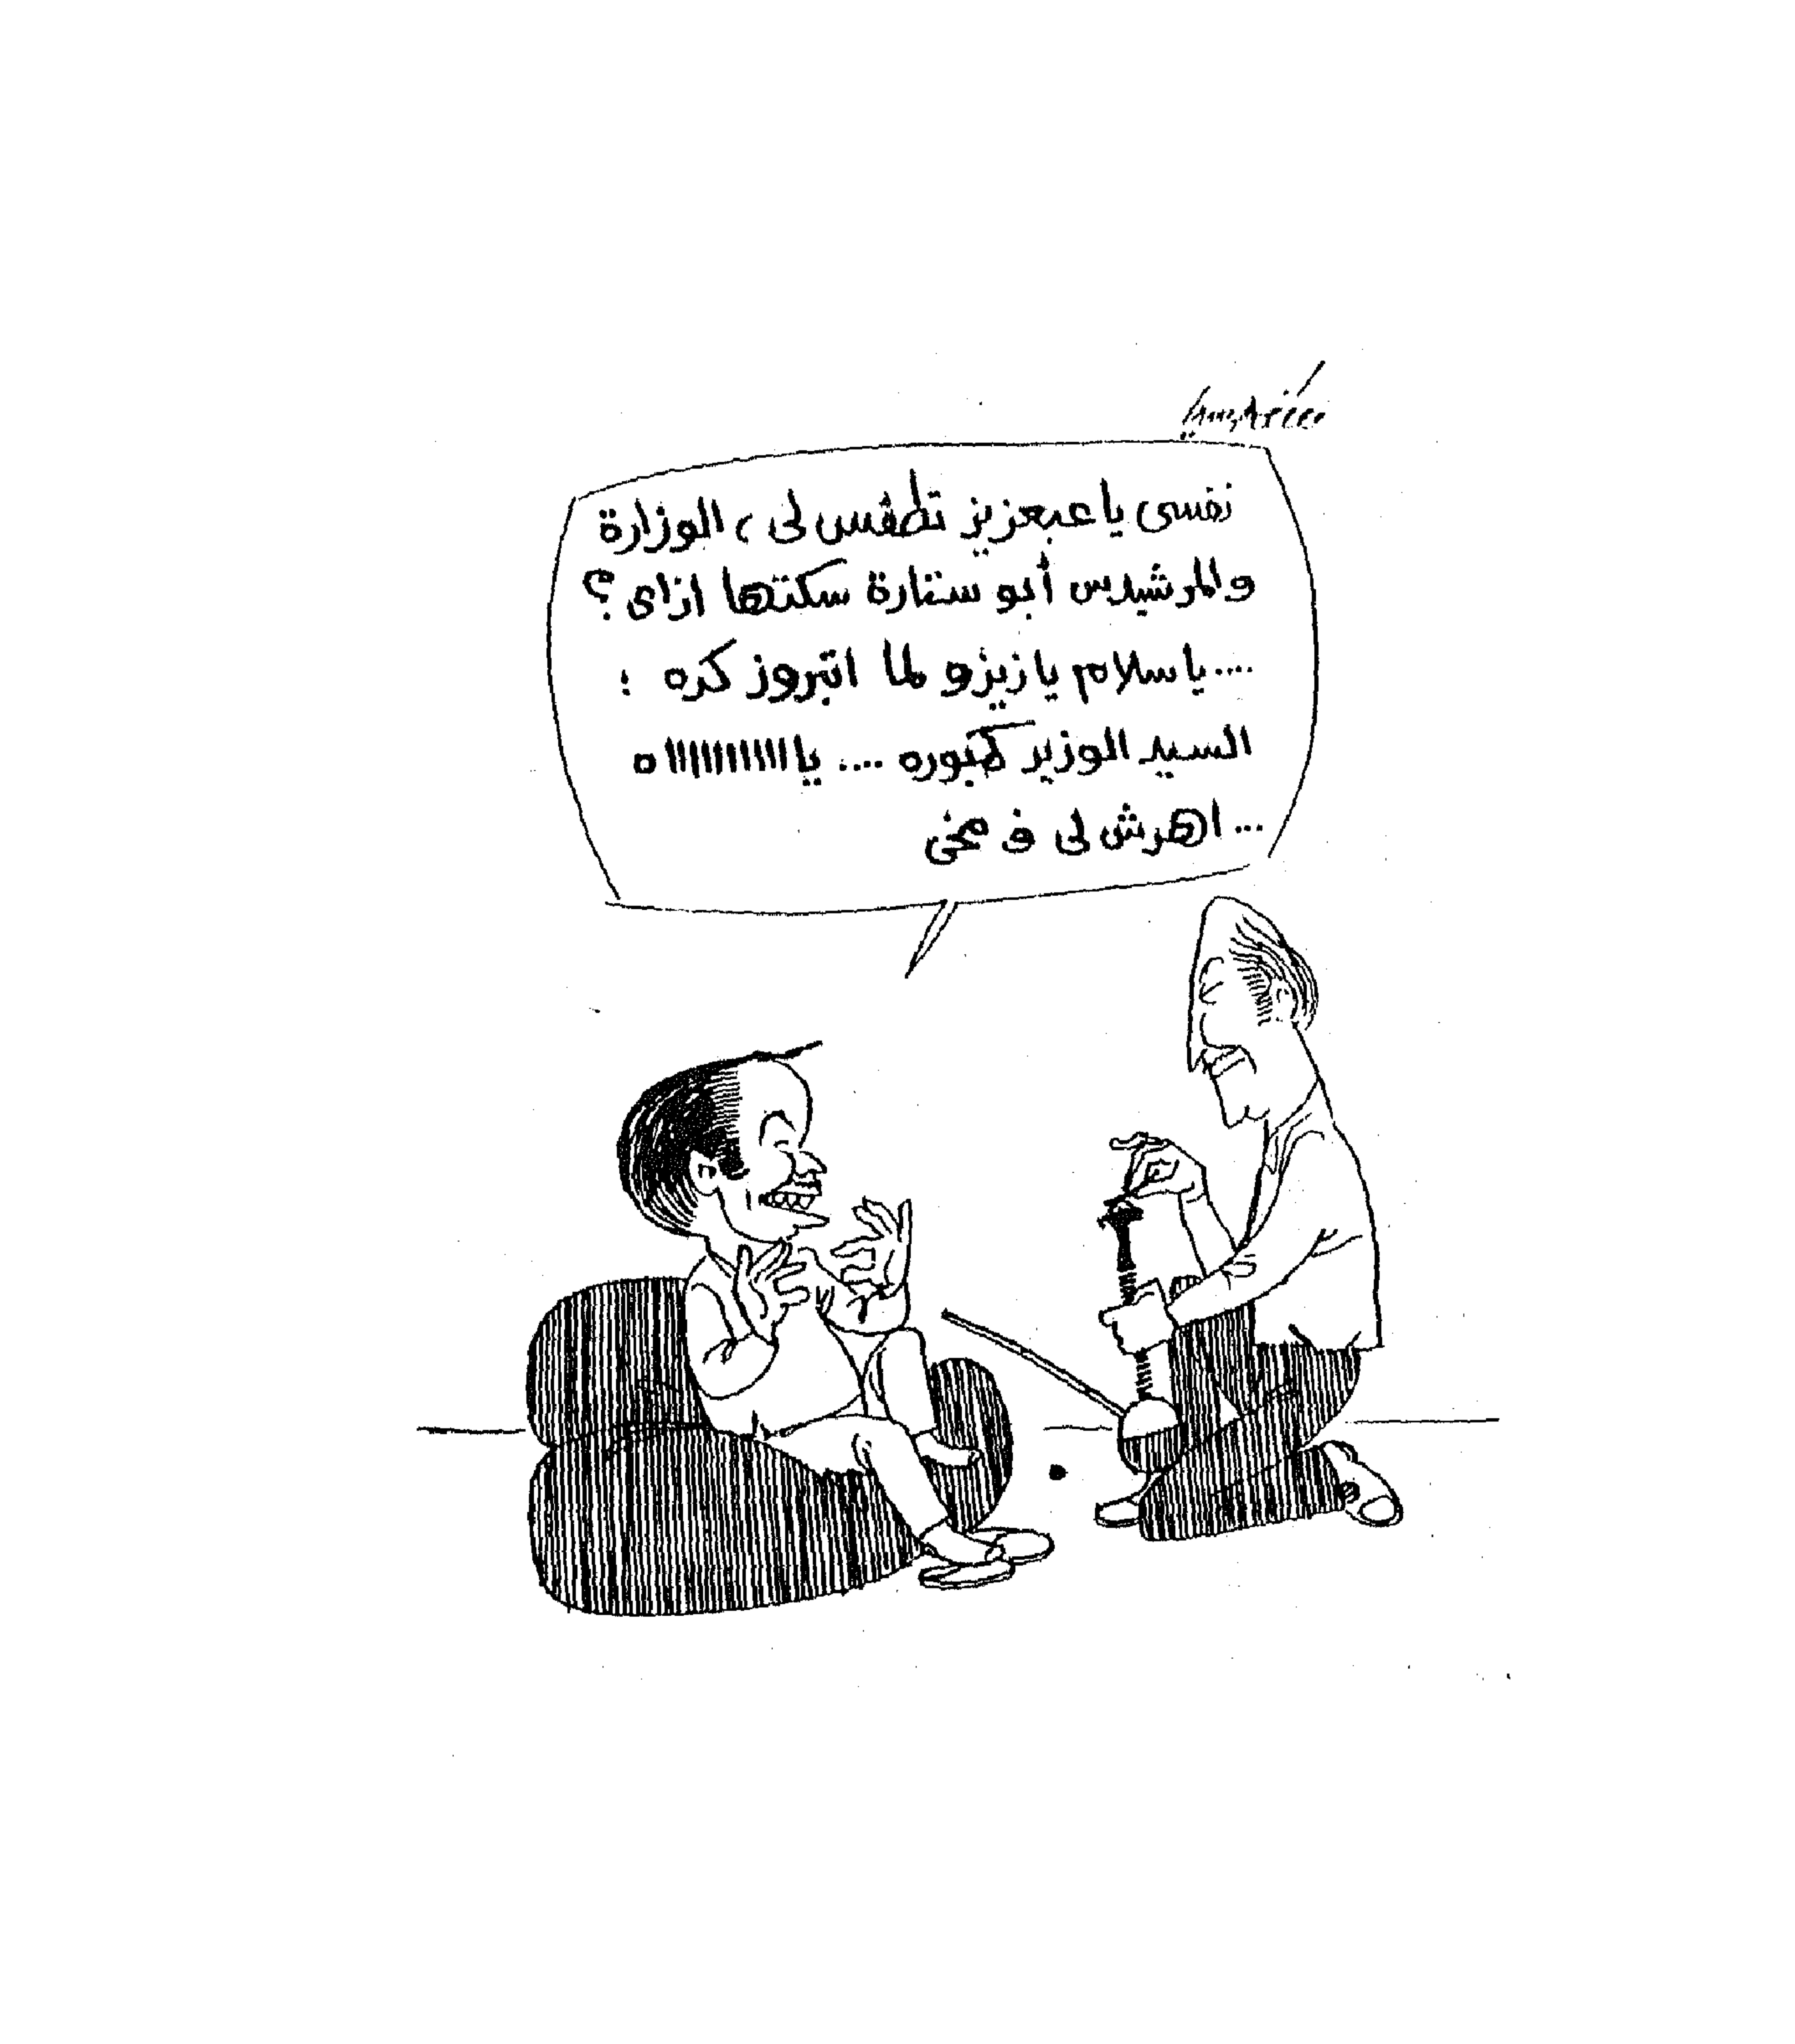 نفسى يا عبعزيز تطقس لى ، الوزارة
والمرشيدس أبو ستارة سكتها ازاى ؟
.... يا سلام يا زيزو لما اتبروز كده :
السيد الوزير كمبوره .... يا اااااااااااه
... اهرش لى ف مخى